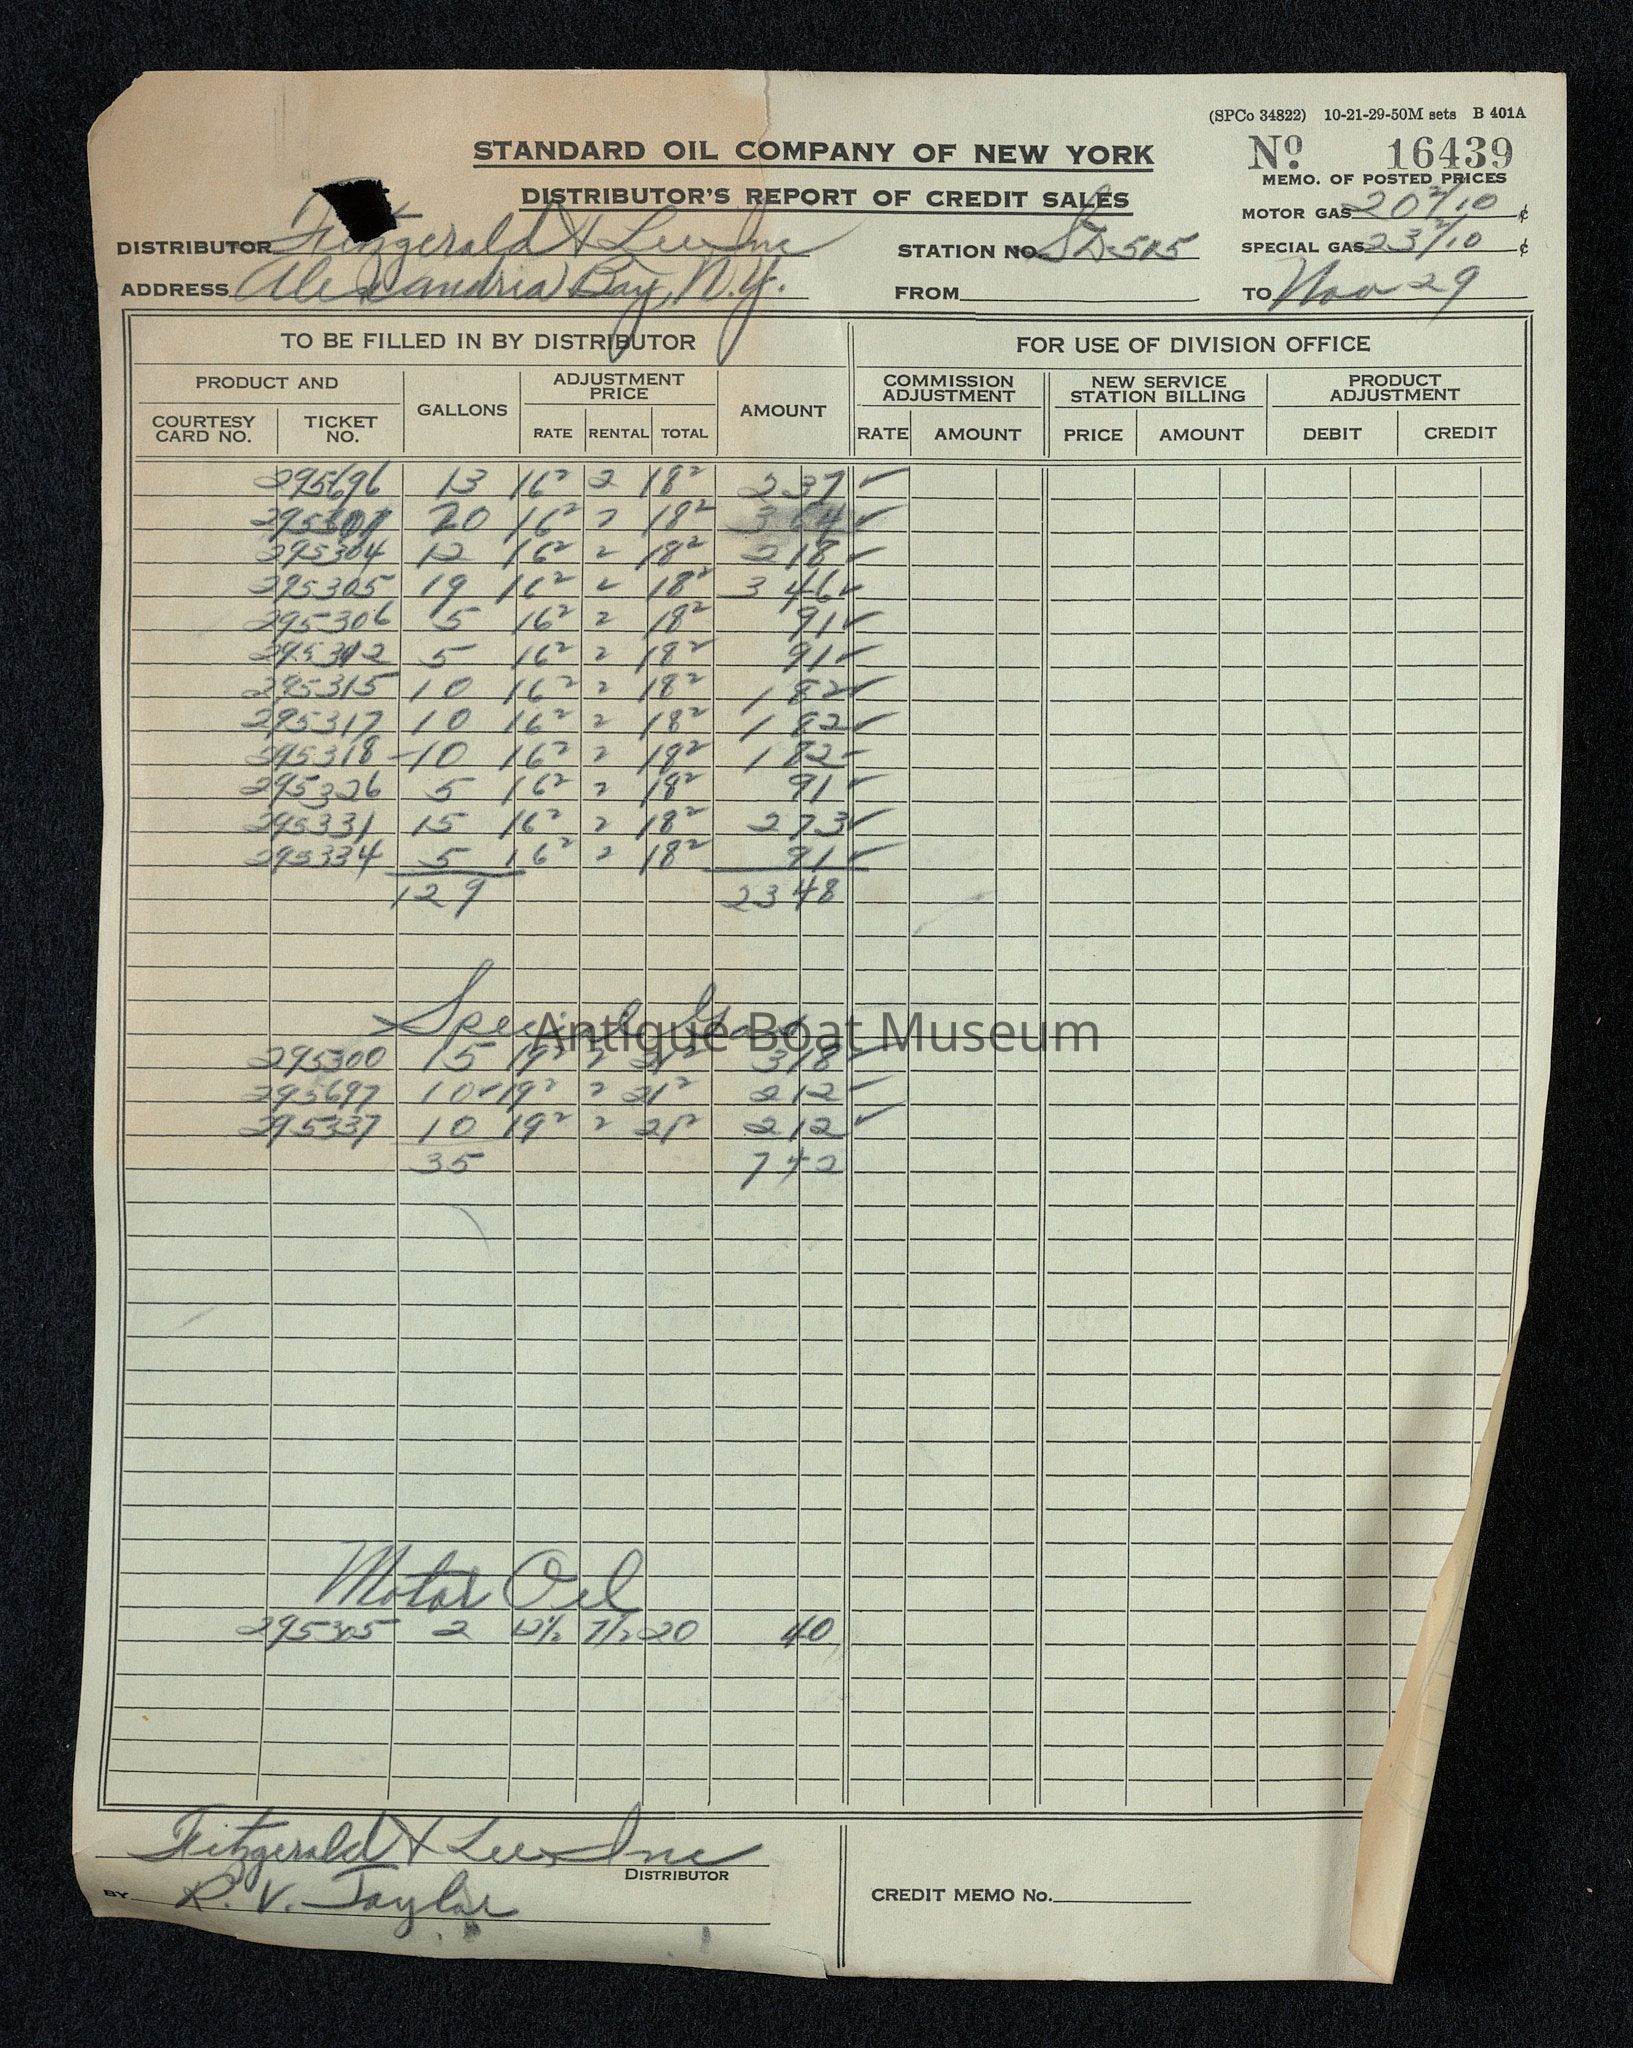 (SPCo 34822) 10-21-29-50M sets B 401A
STANDARD OIL COMPANY OF NEW YORK
No. 16439
DISTRIBUTOR'S REPORT OF CREDIT SALES
MEMO. OF POSTED PRICES
MOTOR GAS 20 2/10 ¢
DISTRIBUTOR Fitzgerald & Lee Inc
STATION NO. SD 515
SPECIAL GAS 23 2/10 ¢
ADDRESS Alexandria Bay, N.Y.
FROM
TO Nov 29
TO BE FILLED IN BY DISTRIBUTOR
FOR USE OF DIVISION OFFICE
PRODUCT AND
GALLONS
ADJUSTMENT PRICE
AMOUNT
COMMISSION ADJUSTMENT
NEW SERVICE STATION BILLING
PRODUCT ADJUSTMENT
COURTESY CARD NO.
TICKET NO.
RATE RENTAL TOTAL
RATE AMOUNT
PRICE AMOUNT
DEBIT CREDIT
295696 13 16² 2 18² 2 37 ✓
20 16² 2 18² 3 64 ✓
295304 12 16² 2 18² 2 18 ✓
295305 19 16² 2 18² 3 46 ✓
295306 5 16² 2 18² 91 ✓
295312 5 16² 2 18² 91 ✓
295315 10 16² 2 18² 1 82 ✓
295317 10 16² 2 18² 1 82 ✓
295318 10 16² 2 18² 1 82 ✓
295326 5 16² 2 18² 91 ✓
295331 15 16² 2 18² 2 73 ✓
295334 5 16² 2 18² 91 ✓
129 23 48
Special Gas
Antique Boat Museum
295300 15 19² 2 21² 3 18 ✓
295697 10 19² 2 21² 2 12 ✓
295337 10 19² 2 21² 2 12 ✓
35 7 42
Motor Oil
295305 2 12½ 7½ 20 40
Fitzgerald & Lee Inc
DISTRIBUTOR
BY R. V. Taylor
CREDIT MEMO No.